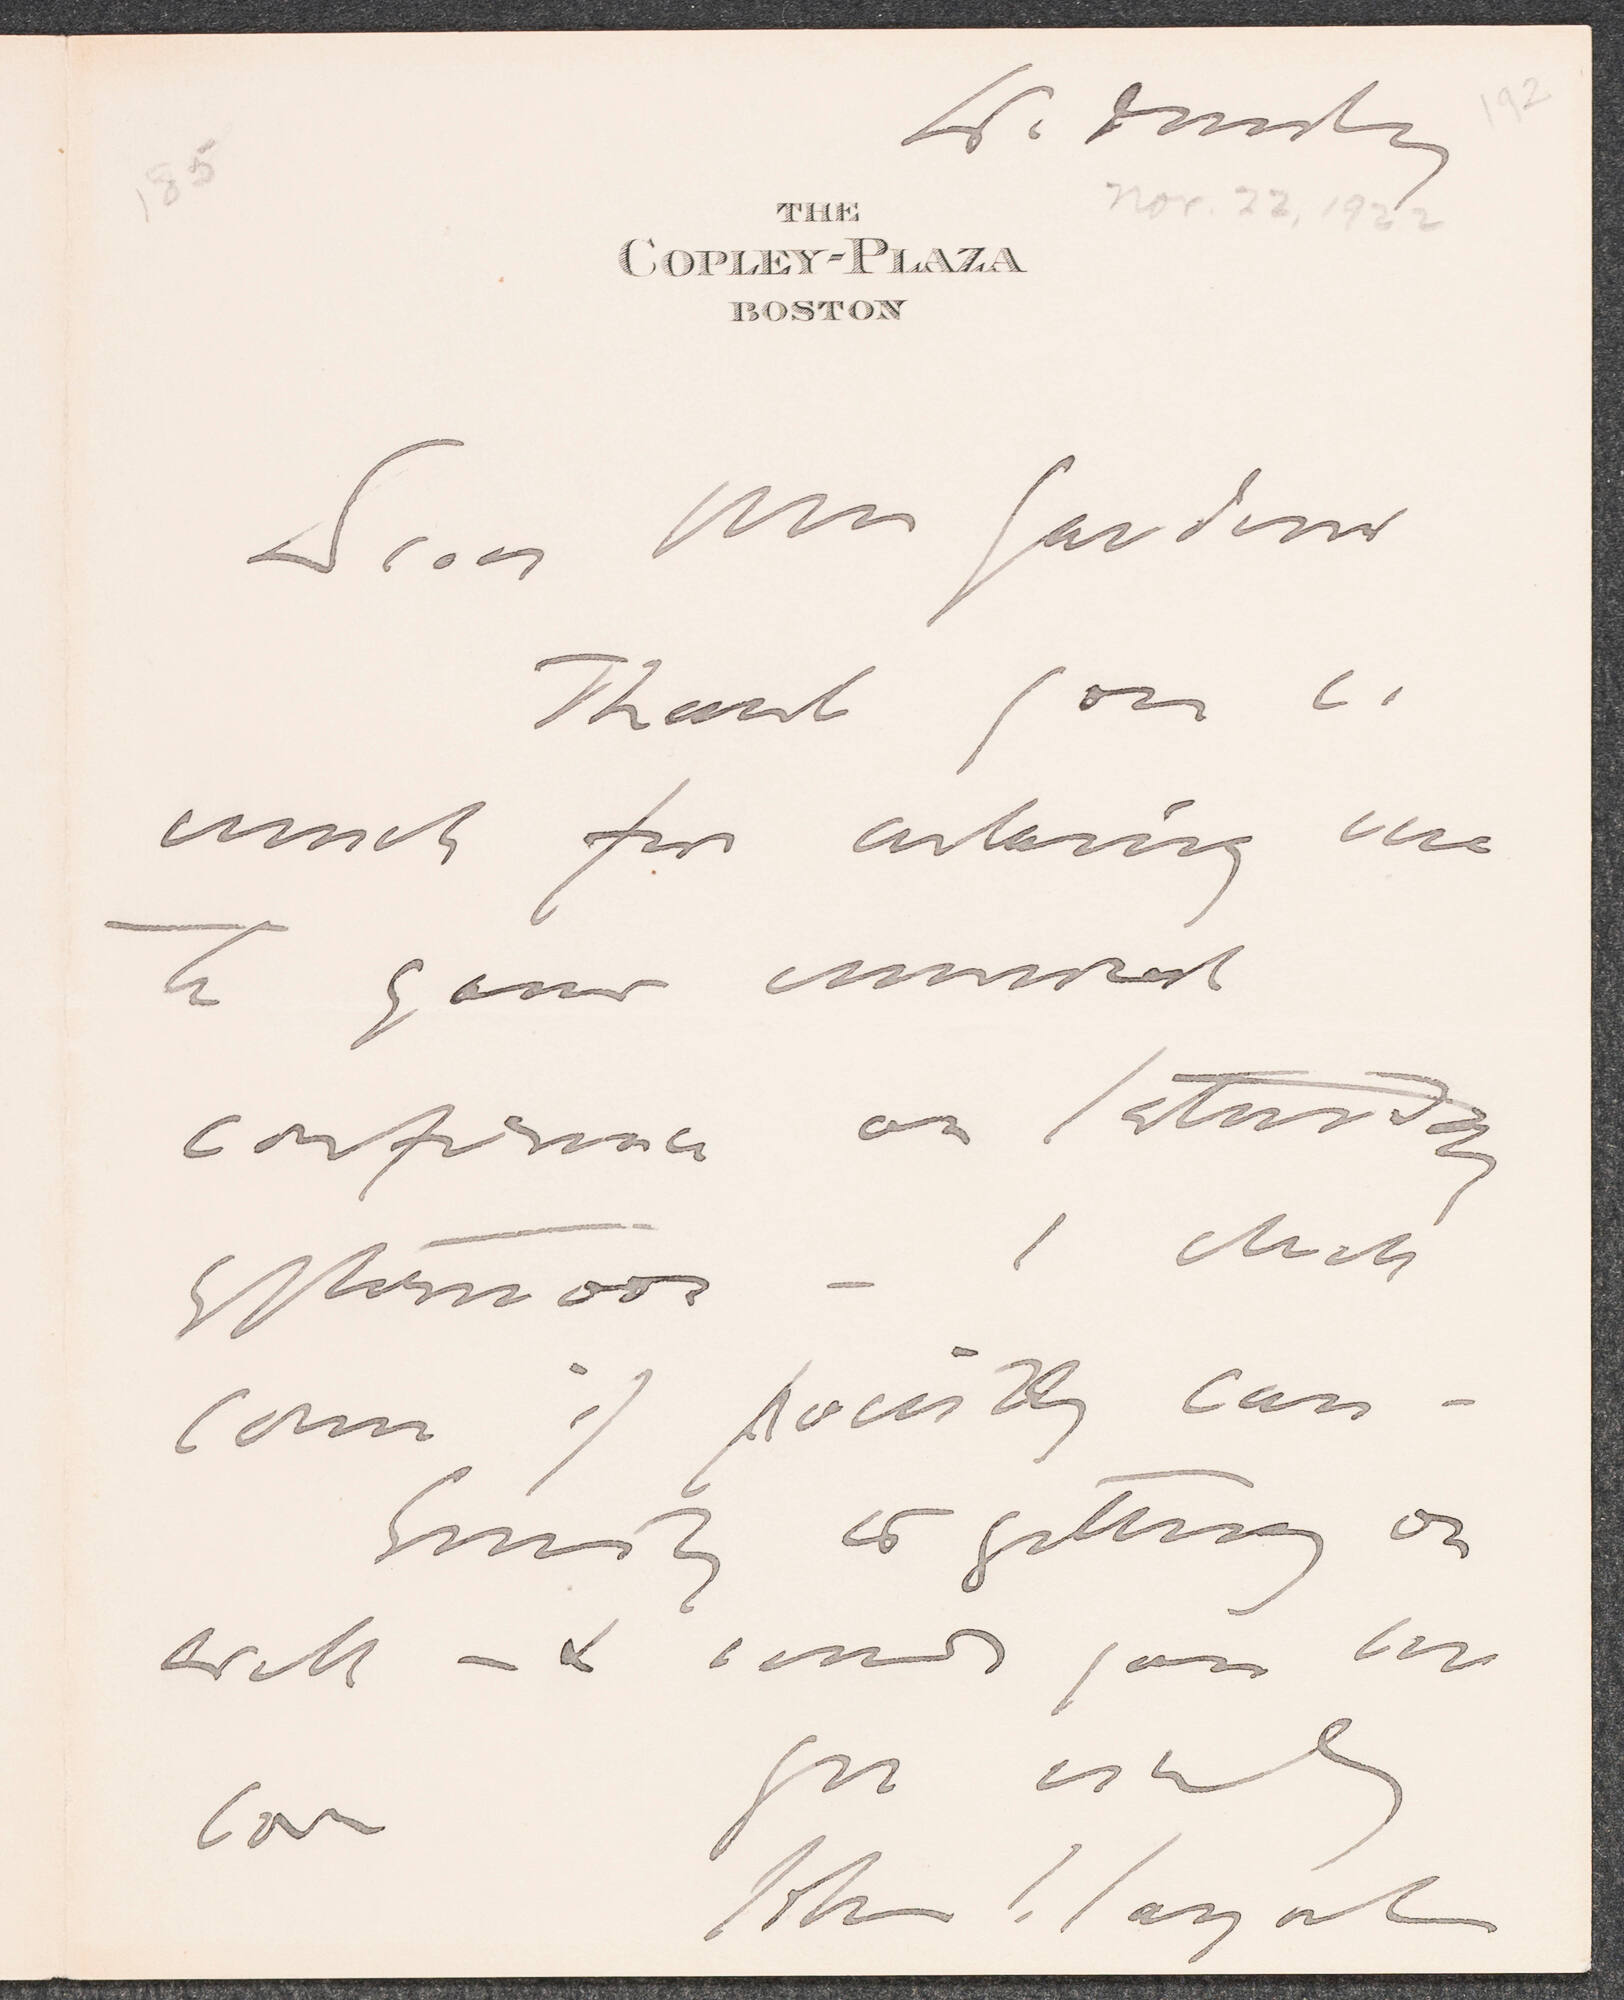 Wednesday
192
185
Nov. 22, 1922
THE
COPLEY-PLAZA
BOSTON
Dear Mrs Gardner
Thank you so
much for asking me
to your musical
conference on Saturday
afternoon - I shall
come if possibly can -
Emily is getting on
well - & sends you her
love
yrs
John S. Sargent